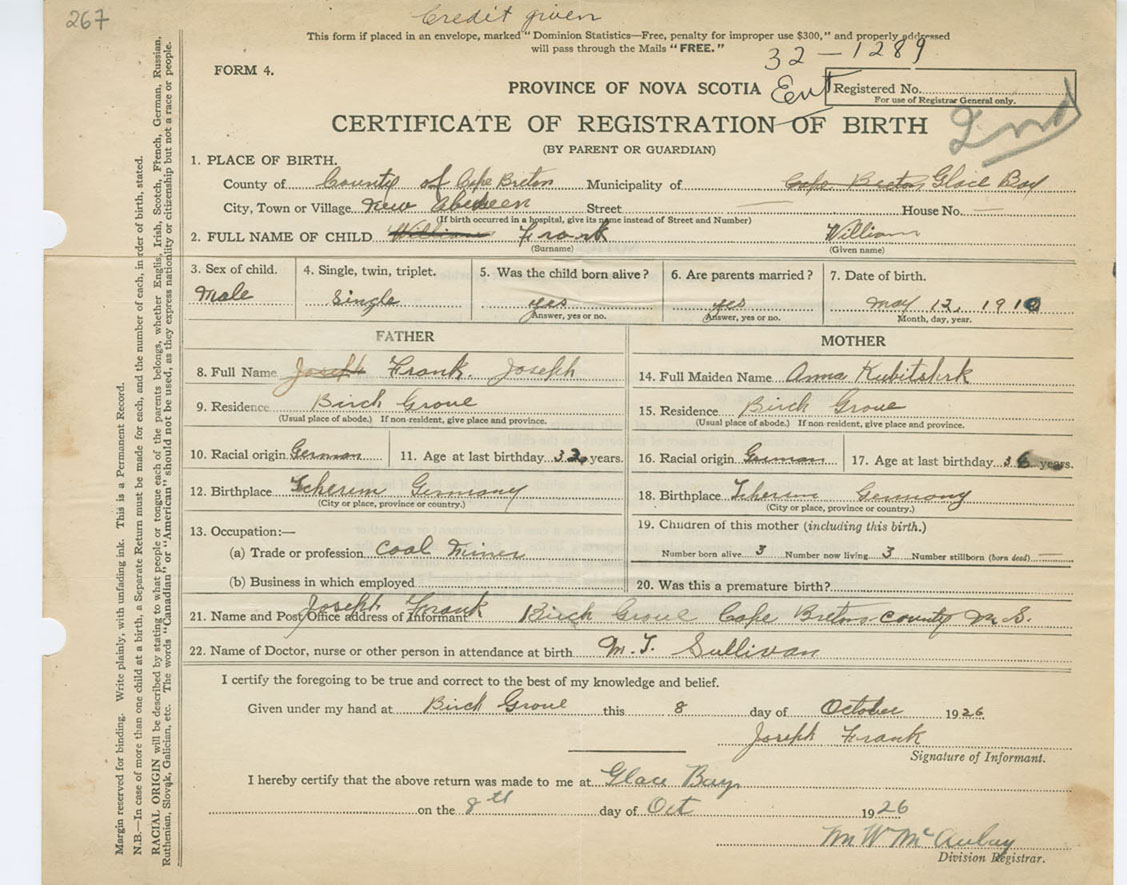 267
Credit given
This form if placed in an envelope, marked "Dominion Statistics—Free, penalty for improper use $300," and properly addressed
will pass through the Mails "FREE."
32-1289
FORM 4.
PROVINCE OF NOVA SCOTIA Ent
Registered No.
For use of Registrar General only.
CERTIFICATE OF REGISTRATION OF BIRTH 2nd
(BY PARENT OR GUARDIAN)
1. PLACE OF BIRTH.
County of County of Cape Breton Municipality of Cape Breton Glace Bay
City, Town or Village New Aberdeen Street — House No. —
(If birth occurred in a hospital, give its name instead of Street and Number)
2. FULL NAME OF CHILD William Frank William
(Surname) (Given name)
3. Sex of child. 4. Single, twin, triplet. 5. Was the child born alive? 6. Are parents married? 7. Date of birth.
Male Single yes yes May 12, 1910
Answer, yes or no. Answer, yes or no. Month, day, year.
FATHER MOTHER
8. Full Name Joseph Frank. Joseph 14. Full Maiden Name Anna Kubitskrk
9. Residence Birch Grove 15. Residence Birch Grove
(Usual place of abode.) If non-resident, give place and province. (Usual place of abode.) If non-resident, give place and province.
10. Racial origin German 11. Age at last birthday 32 years. 16. Racial origin German 17. Age at last birthday 36 years.
12. Birthplace Germany 18. Birthplace Germany
(City or place, province or country.) (City or place, province or country.)
13. Occupation:— 19. Children of this mother (including this birth.)
(a) Trade or profession Coal Miner Number born alive 3 Number now living 3 Number stillborn (born dead) —
(b) Business in which employed 20. Was this a premature birth?
21. Name and Post Office address of Informant Joseph Frank Birch Grove Cape Breton County N.S.
22. Name of Doctor, nurse or other person in attendance at birth M. T. Sullivan
I certify the foregoing to be true and correct to the best of my knowledge and belief.
Given under my hand at Birch Grove this 8 day of October 1926
Joseph Frank
Signature of Informant.
I hereby certify that the above return was made to me at Glace Bay
on the 8th day of Oct 1926
Wm W McAulay
Division Registrar.
Margin reserved for binding. Write plainly, with unfading ink. This is a Permanent Record.
N.B.—In case of more than one child at a birth, a Separate Return must be made for each, and the number of each, in order of birth, stated.
RACIAL ORIGIN will be described by stating to what people or tongue each of the parents belongs, whether Englis, Irish, Scotch, French, German, Russian,
Ruthenian, Slovak, Galician, etc. The words "Canadian" or "American" should not be used, as they express nationlity or citizenship but not a race or people.